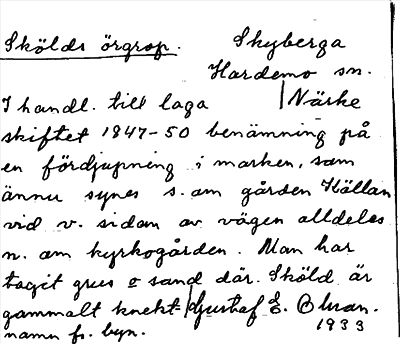 Skölds örgrop. Skyberga
Hardemo sn.
I handl. till laga | Närke
skiftet 1847-50 benämning på
en fördjupning i marken, som
ännu synes s. om gården Källan
vid v. sidan av vägen alldeles
n. om kyrkogården. Man har
tagit grus o sand där. Sköld är
gammalt knekt- | Gustaf E.
namn fr. byn. 1933